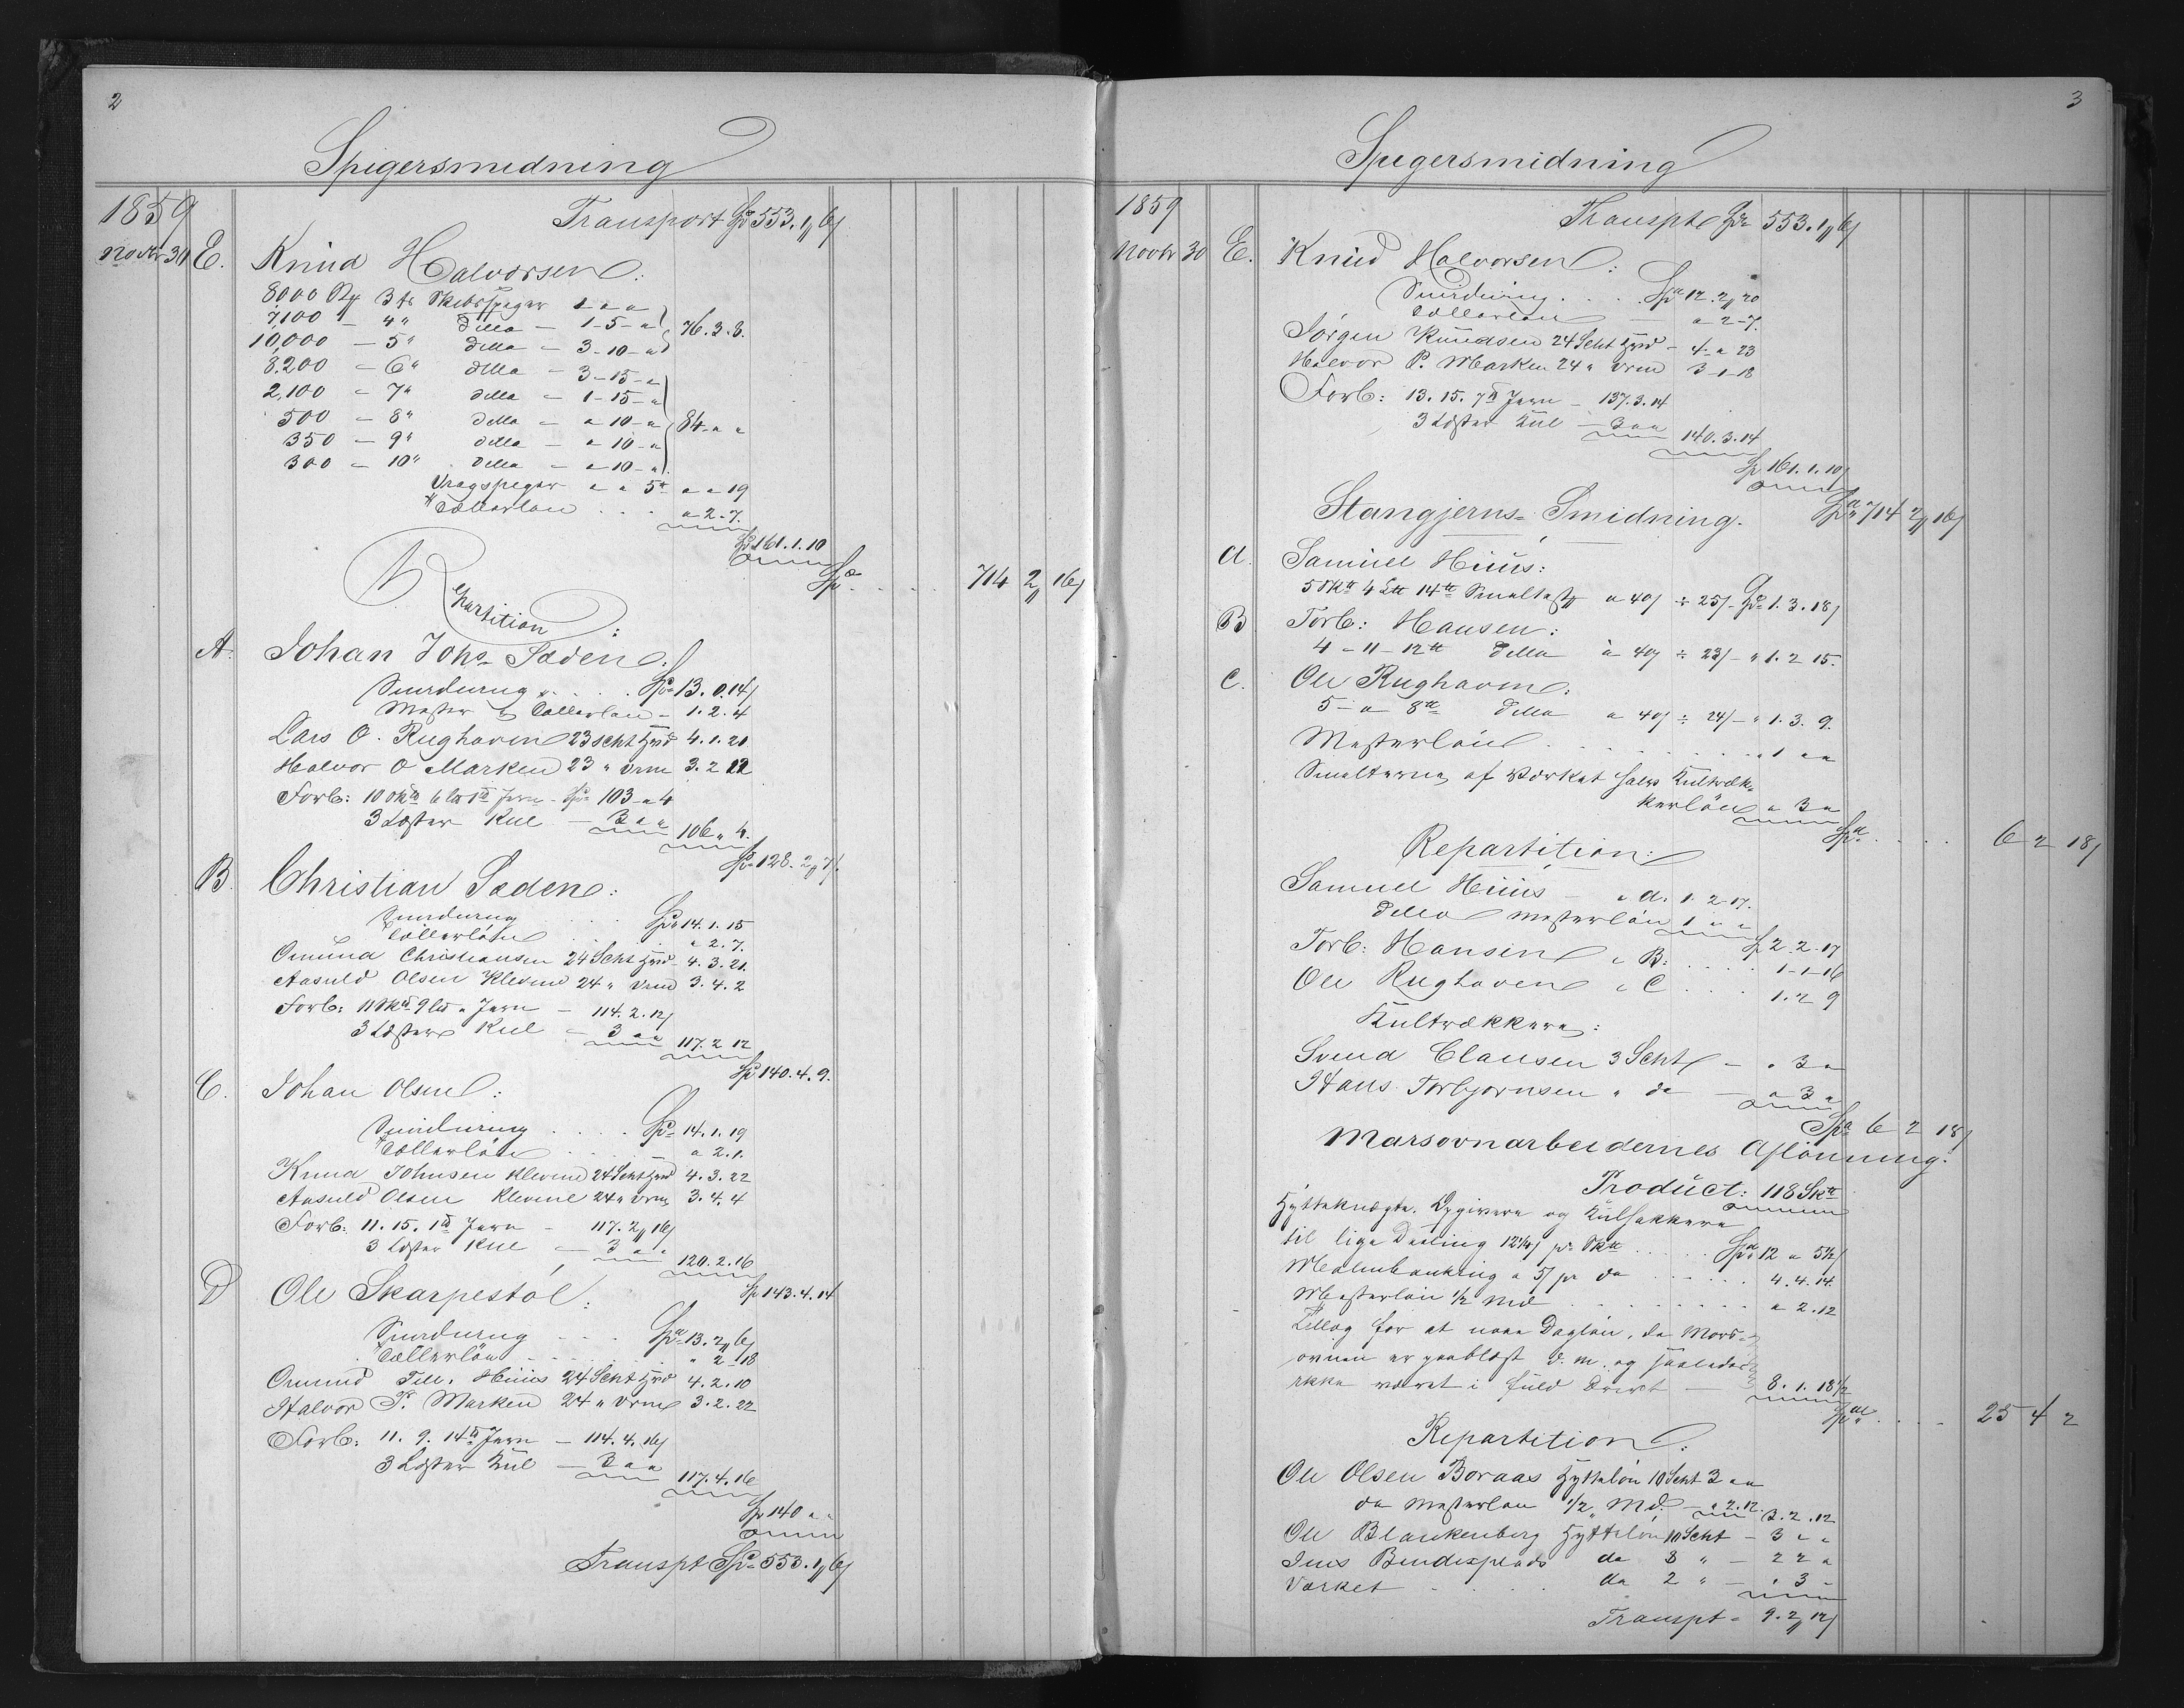 2
Spigersmidning
1859
Transport Spd 553. 1 6/
Novbr 30 E. Knud Halvorsen:
8000 3 ts Skibsspiger 1 " "
7,100 – 4 " ditto – 1-5- "
76.3.3.
10,000 – 5 " ditto – 3-10- "
8.200 – 6 " ditto – 3-15- "
2,100 – 7 " ditto – 1-15- "
500 – 8 " ditto – " 10- "
84 " "
350 – 9 " ditto – " 10- "
300 – 10 " ditto – " 10- "
Vragspiger " " 5 " " 19
Tællerløn . . . " 2.7.
Spd 161.1.10
Spd . . . . 714 2 16/
Repartition:
A. Johan Johs. Saden:
Smidning . . . . Spd 13.0.14/
Mester & Tællerløn – 1.2.4
Lars O. Rughaven 23 Scht hjrd 4.1.21
Halvor O Marken 23 " vrm 3.2.12
Forb: 10 Skd 6 Ld 1 Jern – Spd 103 " 4
3 Læster Kul – 3 " " 106 " 4.
Spd 128. 2 7/.
B. Christian Saden:
Smidning . . . . Spd 14.1.15
Tællerløn . . . " 2.7.
Omund Christiansen 24 Scht hjrd – 4.3.21.
Aasuld Olsen Klevene 24 " vrm 3.4.2
Forb: 11 Skd 9 Ld " Jern – 114.2.12/
3 Læster Kul – 3 " " 117.2 12
Spd 140.4.9.
C. Johan Olsen:
Smidning . . . . Spd 14.1.19
Tællerløn . . . " 2.1.
Knud Johnsen Klevene 24 Scht hjrd 4.3.22
Aasuld Olsen Klevene 24 " vrm 3.4.4
Forb: 11.15.1 Jern – 117.2 16/
3 Læster Kul – 3 " " 120.2.16
Spd 143.4.14
D Ole Skarpestøl:
Smidning . . . . Spd 13.2 6/
Tællerløn . . . " 2-18
Omund Tell. Huus 24 Scht hjrd 4.2.10
Halvor P. Marken 24 " vrm 3.2.22
Forb: 11.9.14 Jern – 114.4.16/
3 Læster Kul – 3 " " 117.4.16
Spd 140 " "
Transpt Spd 553. 1 6/
3
Spigersmidning
1859
Transpt Spd 553. 1 6/
Novbr 30 E. Knud Halvorsen:
Smidning . . . . Spd 12.2 20
Tællerløn – " 2-7.
Jørgen Knudsen 24 Scht hjrd – 4 " 23
Halvor P. Marken 24 " vrm 3-1-18
Forb: 13.15.7 Jern – 137.3.14
3 Læster Kul – 3 " " 140.3.14
Spd 161.1.10/
Spd 714 2 16/
Stangjerns-Smidning.
A. Samuel Huus:
5 Skd 4 Ld 14 Smeltest a 40/ ÷ 25/- Spd 1.3.18/
B Torb: Hansen:
4 – 11 – 12 ditto à 40/ ÷ 23/ – " 1.2 15.
C. Ole Rughaven:
5 – " 8 ditto a 40/ ÷ 24/ – " 1.3.9.
Mesterløn . . . . . . . . . " 1 " "
Smelterne af Værket halv Kultræk-
kerløn " 3 "
Spd . . . . 6 2 18/
Repartition:
Samuel Huus – " A. 1.2-17.
ditto Mesterløn 1 " "
Spd 2.2-17
Torb: Hansen " B: . . . . 1-1-16
Ole Rughaven " C . . . 1.2 9
Kultrækkere:
Svend Clausen 3 Scht – " 3 "
Hans Torbjørnsen " do – " 3 "
Spd 6 2 18/
Marsovnarbeidernes Aflønning.
Product: 118 Skd
Hytteknægte, Opgivere og Kulsækkere
til lige Deeling 12 1/4/ pr Skd . . . . . Spd 12 " 5 1/2/
Malmbankning a 5/ pr do . . . . . . 4.4.14.
Mesterløn 1/2 Md . . . . . . . . . " 2.12
Tillæg for at naae Dagløn, da Mars-
ovnen er paablæst d. m. og saaledes
ikke været i fuld Drivt – 8.1.18 1/2
Spd . . . . 25 4 2
Repartition:
Ole Olsen Boraas Hytteløn 10 Scht 3 " "
do Mesterløn 1/2 Md. – " 2.12. 3.2.12
Ole Blankenberg Hytteløn 10 Scht – 3 " "
Jens Bendixplads do 8 " – 2 2 "
Værket . . . . do 2 " – " 3 –
Transpt – 9.2 12/